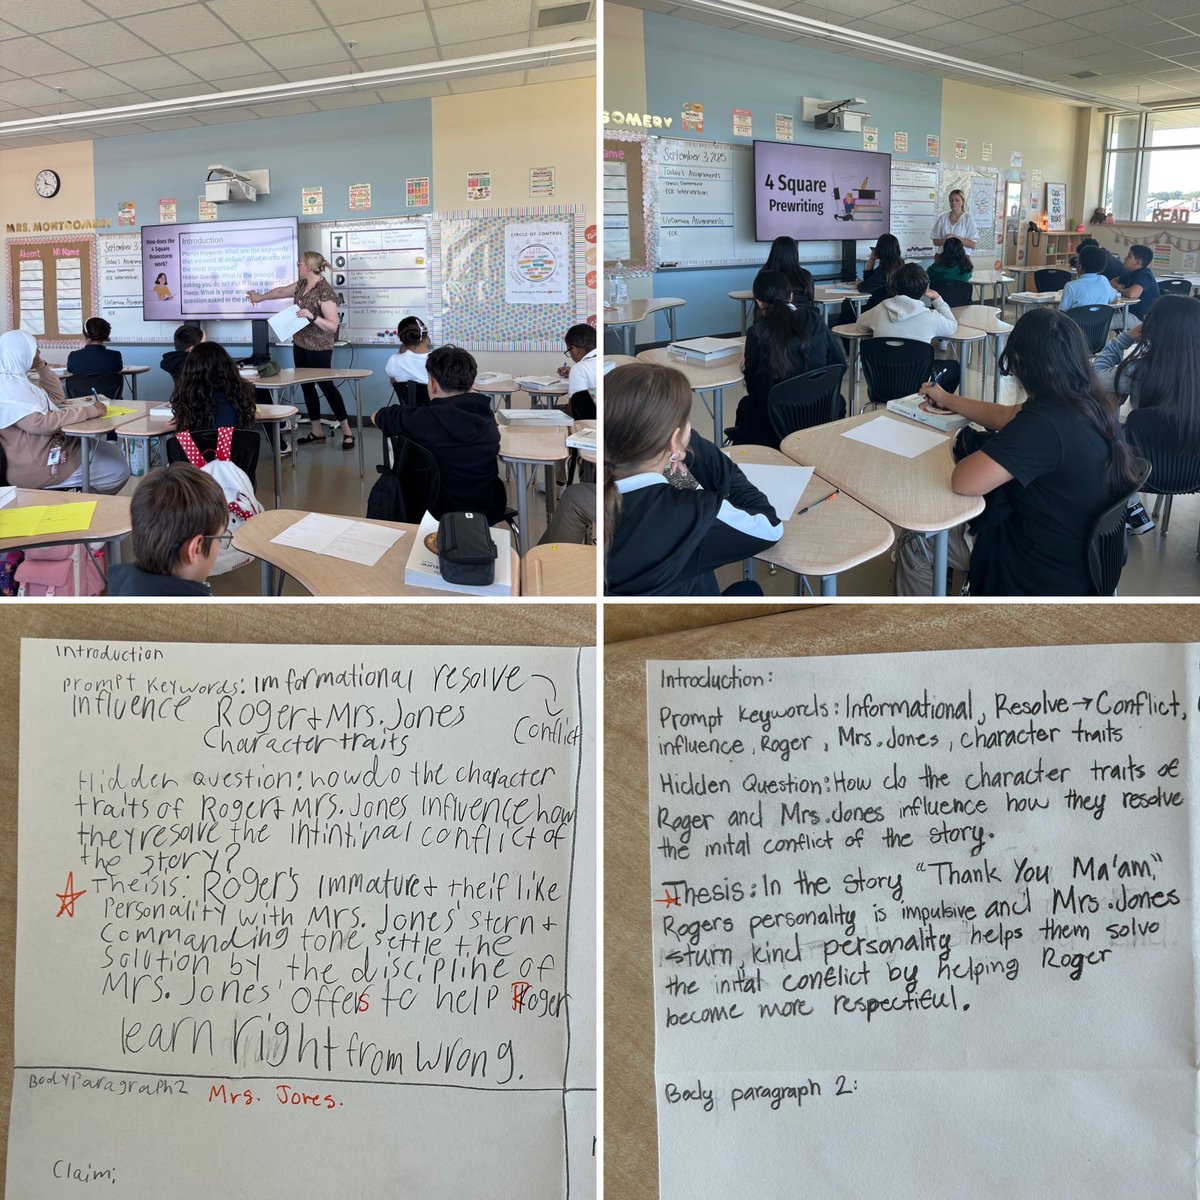 MRS. MONTGOMERY
Absent
Name
September 3,
Today's Assignments
ECR Intervention
Upcoming Assignments
ECR
How does the
4 Square
Brainstorm
work?
Introduction
Prompt Keywords: What are the keywords
that we need to define? What words are
the most important?
Hidden Question: What is the prompt
asking you to do? Put it into a question
Thesis: What is your answer to the
question asked in the
TODAY
PRONOUNS
CIRCLE OF CONTROL
GOMERY
Name
September 3, 2025
Today's Assignments
Thesis Statement
ECR Intervention
Upcoming Assignments
4 Square
Prewriting
READ
Introduction
Prompt Keywords: Imformational resolve
influence Roger & Mrs. Jones Conflict
Character traits
Hidden Question: how do the character
traits of Roger & Mrs. Jones influence how
they resolve the intintinal conflict of
the story?
Theisis: Roger's immature & theif like
Personality with Mrs. Jones' stern &
commanding tone, settle the
solution by the discipline of
Mrs. Jones' offers to help Roger
learn right from wrong.
Body Paragraph 2 Mrs. Jones.
Claim:
Introduction:
Prompt Keywords: Informational, Resolve → Conflict,
influence, Roger, Mrs. Jones, character traits
Hidden Question: How do the character traits of
Roger and Mrs. Jones influence how they resolve
the inital conflict of the story.
Thesis: In the story "Thank You Ma'am,"
Rogers personality is impulsive and Mrs. Jones
sturn, kind personality helps them solve
the inital conflict by helping Roger
become more respectful.
Body paragraph 2: